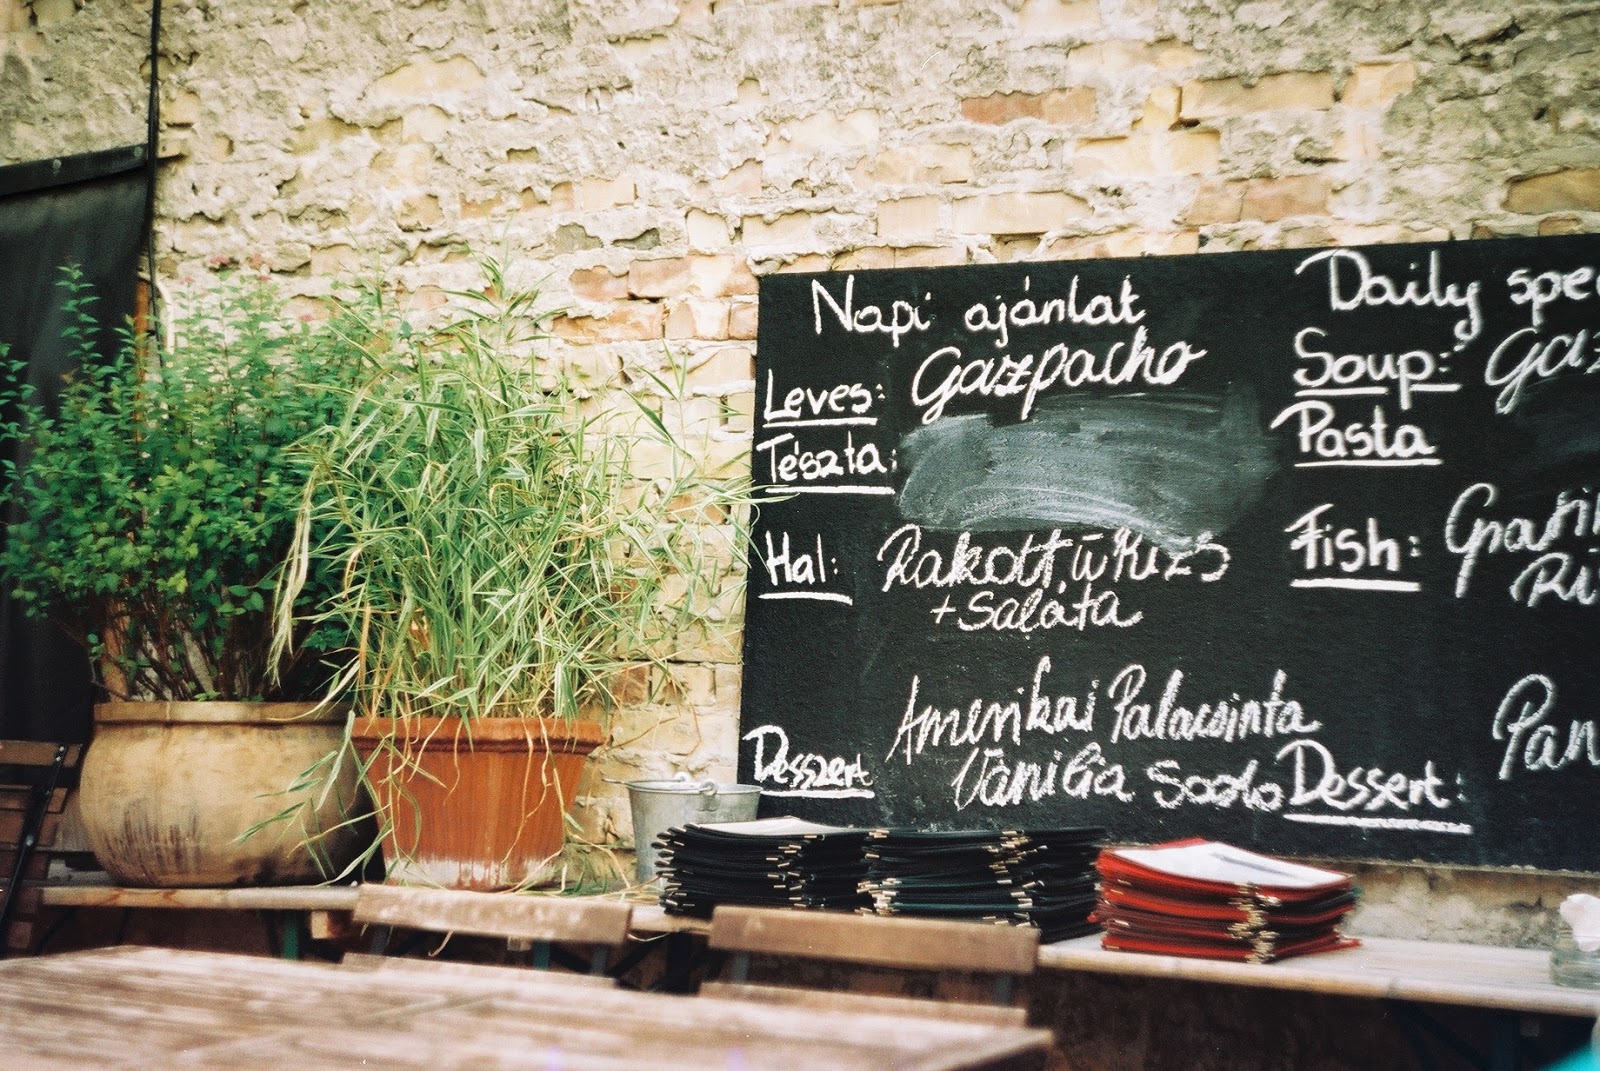 Napi ajánlat
Leves: Gazpacho
Tészta:
Hal: Rakott
+ Saláta
Desszert Amerikai Palacsinta
Vanilia
Daily spec
Soup: Gaz
Pasta
Fish:
Ri
Dessert: Pan